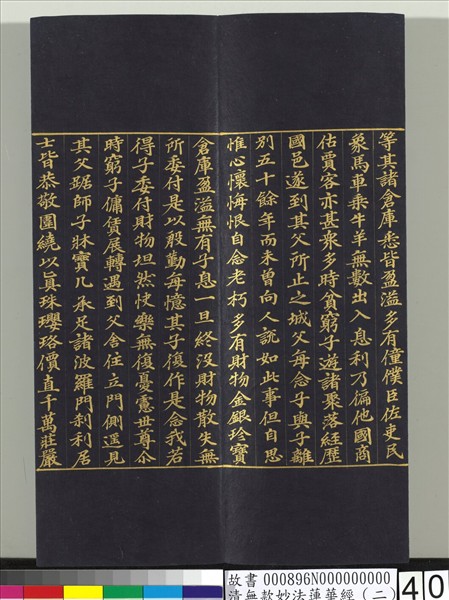 等其諸倉庫悉皆盈溢多有僮僕臣佐吏民
象馬車乘牛羊無數出入息利乃徧他國商
估賈客亦甚衆多時貧窮子遊諸聚落經歷
國邑遂到其父所止之城父母念子與子離
別五十餘年而未曾向人說如此事但自思
惟心懷悔恨自念老朽多有財物金銀珍寶
倉庫盈溢無有子息一旦終沒財物散失無
所委付是以殷勤每憶其子復作是念我若
得子委付財物坦然快樂無復憂慮世尊尒
時窮子傭賃展轉遇到父舍住立門側遥見
其父踞師子牀寶几承足諸波羅門刹利居
士皆恭敬圍繞以真珠瓔珞價直千萬莊嚴
故書 000896N000000000
清無款妙法蓮華經(二)
40